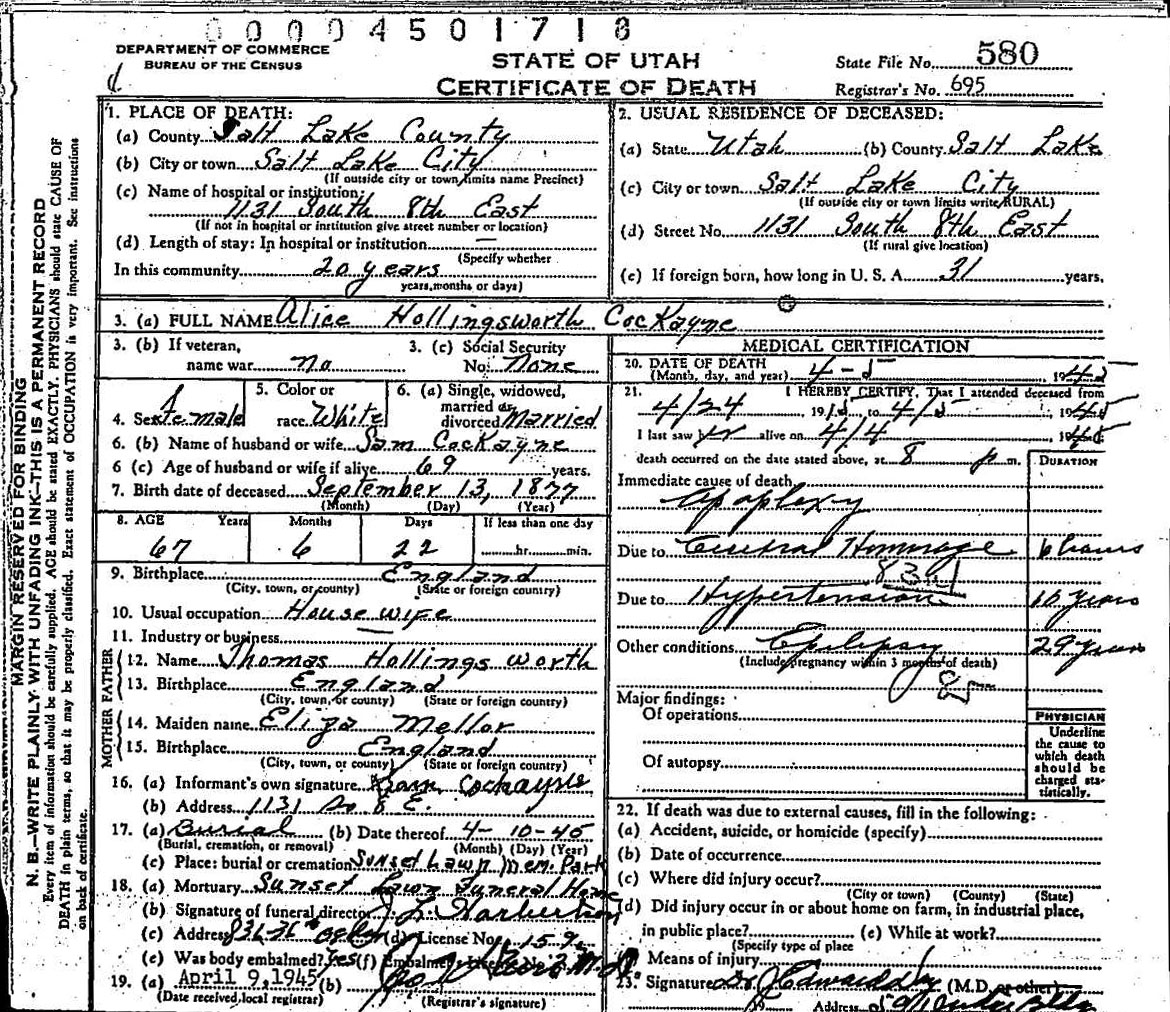 0000450171
DEPARTMENT OF COMMERCE
BUREAU OF THE CENSUS
STATE OF UTAH
CERTIFICATE OF DEATH
State File No. 580
Registrar's No. 695
MARGIN RESERVED FOR BINDING
N. B.—WRITE PLAINLY WITH UNFADING INK—THIS IS A PERMANENT RECORD
Every item of information should be carefully supplied. AGE should be stated EXACTLY. PHYSICIANS should state CAUSE OF
DEATH in plain terms, so that it may be properly classified. Exact statement of OCCUPATION is very important. See instructions
on back of certificate.
1. PLACE OF DEATH:
(a) County Salt Lake County
(b) City or town Salt Lake City
(If outside city or town limits name Precinct)
(c) Name of hospital or institution:
1131 South 8th East
(If not in hospital or institution give street number or location)
(d) Length of stay: In hospital or institution —
(Specify whether
In this community 20 years
years, months or days)
2. USUAL RESIDENCE OF DECEASED:
(a) State Utah (b) County Salt Lake
(c) City or town Salt Lake City
(If outside city or town limits write RURAL)
(d) Street No. 1131 South 8th East
(If rural give location)
(e) If foreign born, how long in U. S. A. 31 years.
3. (a) FULL NAME Alice Hollingsworth Cockayne
3. (b) If veteran, name war no
3. (c) Social Security No. None
4. Sex Female
5. Color or race White
6. (a) Single, widowed, married or divorced Married
6. (b) Name of husband or wife Sam Cockayne
6 (c) Age of husband or wife if alive 69 years.
7. Birth date of deceased September 13, 1877
(Month) (Day) (Year)
8. AGE Years Months Days If less than one day
67 6 22 hr. min.
9. Birthplace England
(City, town, or county) (State or foreign country)
10. Usual occupation House wife
11. Industry or business —
FATHER
12. Name Thomas Hollingsworth
13. Birthplace England
(City, town, or county) (State or foreign country)
MOTHER
14. Maiden name Eliza Mellor
15. Birthplace England
(City, town, or county) (State or foreign country)
16. (a) Informant's own signature Sam Cockayne
(b) Address 1131 So 8 E.
17. (a) Burial (b) Date thereof 4-10-45
(Burial, cremation, or removal) (Month) (Day) (Year)
(c) Place: burial or cremation Sunset Lawn Mem. Park
18. (a) Mortuary Sunset Lawn Funeral Home
(b) Signature of funeral director
(c) Address (d) License No. 159
(e) Was body embalmed? Yes (f) Embalmer's License No.
19. (a) April 9, 1945 (b)
(Date received, local registrar) (Registrar's signature)
MEDICAL CERTIFICATION
20. DATE OF DEATH 4-5 1945
(Month, day, and year)
21. I HEREBY CERTIFY, That I attended deceased from
4/24 19 to 4/5, 1945
I last saw her alive on 4/4, 1945
death occurred on the date stated above, at 8 p m.
DURATION
Immediate cause of death
Apoplexy
Due to Cerebral Hommage 6 hours
83
Due to Hypertension 10 years
Other conditions Epilepsy 29 years
(Include pregnancy within 3 months of death)
85
Major findings:
Of operations
Of autopsy
PHYSICIAN
Underline
the cause to
which death
should be
charged sta-
tistically.
22. If death was due to external causes, fill in the following:
(a) Accident, suicide, or homicide (specify)
(b) Date of occurrence
(c) Where did injury occur?
(City or town) (County) (State)
(d) Did injury occur in or about home on farm, in industrial place,
in public place? (e) While at work?
(Specify type of place
Means of injury
23. Signature (M.D. or other)
Address